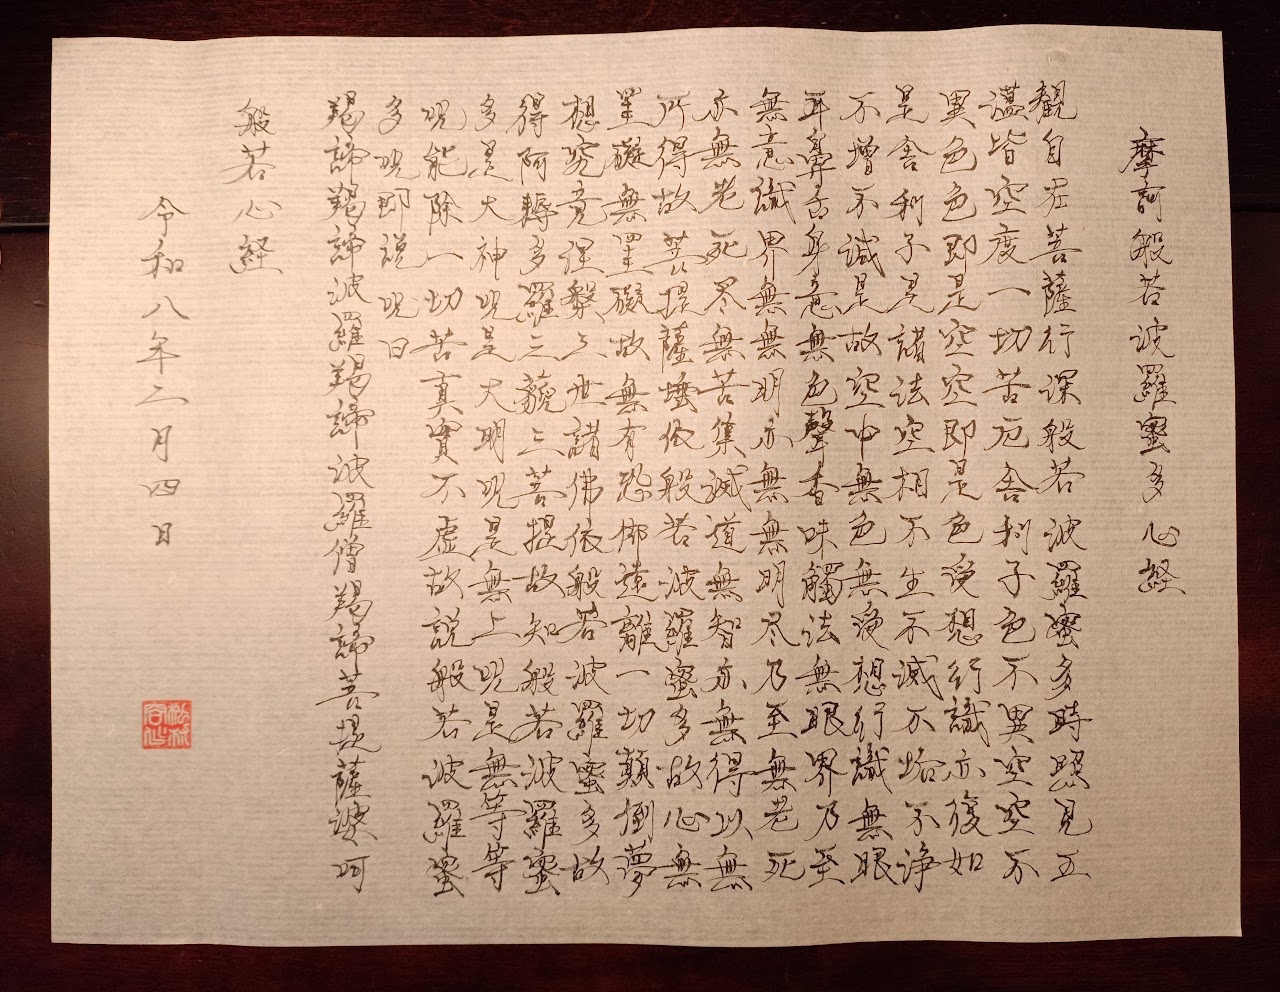 摩訶般若波羅蜜多心経
觀自在菩薩行深般若波羅蜜多時照見五
蘊皆空度一切苦厄舎利子色不異空空不
異色色即是空空即是色受想行識亦復如
是舎利子是諸法空相不生不滅不垢不浄
不増不減是故空中無色無受想行識無眼
耳鼻舌身意無色聲香味觸法無眼界乃至
無意識界無無明亦無無明尽乃至無老死
亦無老死尽無苦集滅道無智亦無得以無
所得故菩提薩埵依般若波羅蜜多故心無
罣礙無罣礙故無有恐怖遠離一切顛倒夢
想究竟涅槃三世諸佛依般若波羅蜜多故
得阿耨多羅三藐三菩提故知般若波羅蜜
多是大神呪是大明呪是無上呪是無等等
呪能除一切苦真實不虚故説般若波羅蜜
多呪即説呪曰
羯諦羯諦波羅羯諦波羅僧羯諦菩提薩婆訶
般若心経
令和八年二月四日